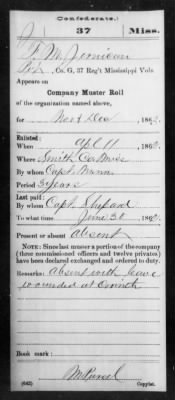 Confederate.
37 Miss.
F M Jernigan
Co. G, 37 Reg't Mississippi Vols
Appears on
Company Muster Roll
of the organization named above,
for Nov & Dec, 1862.
Enlisted:
When Apl 11, 1862.
Where Smith Co Miss
By whom Capt
Period 3 years
Last paid:
By whom Capt
To what time June 30, 1862.
Present or absent Absent
NOTE: Since last muster a portion of the company
(three commissioned officers and twelve privates)
have been declared exchanged and ordered to duty.
Remarks: Absent with leave
wounded at Corinth
Book mark:
(642) Copyist.